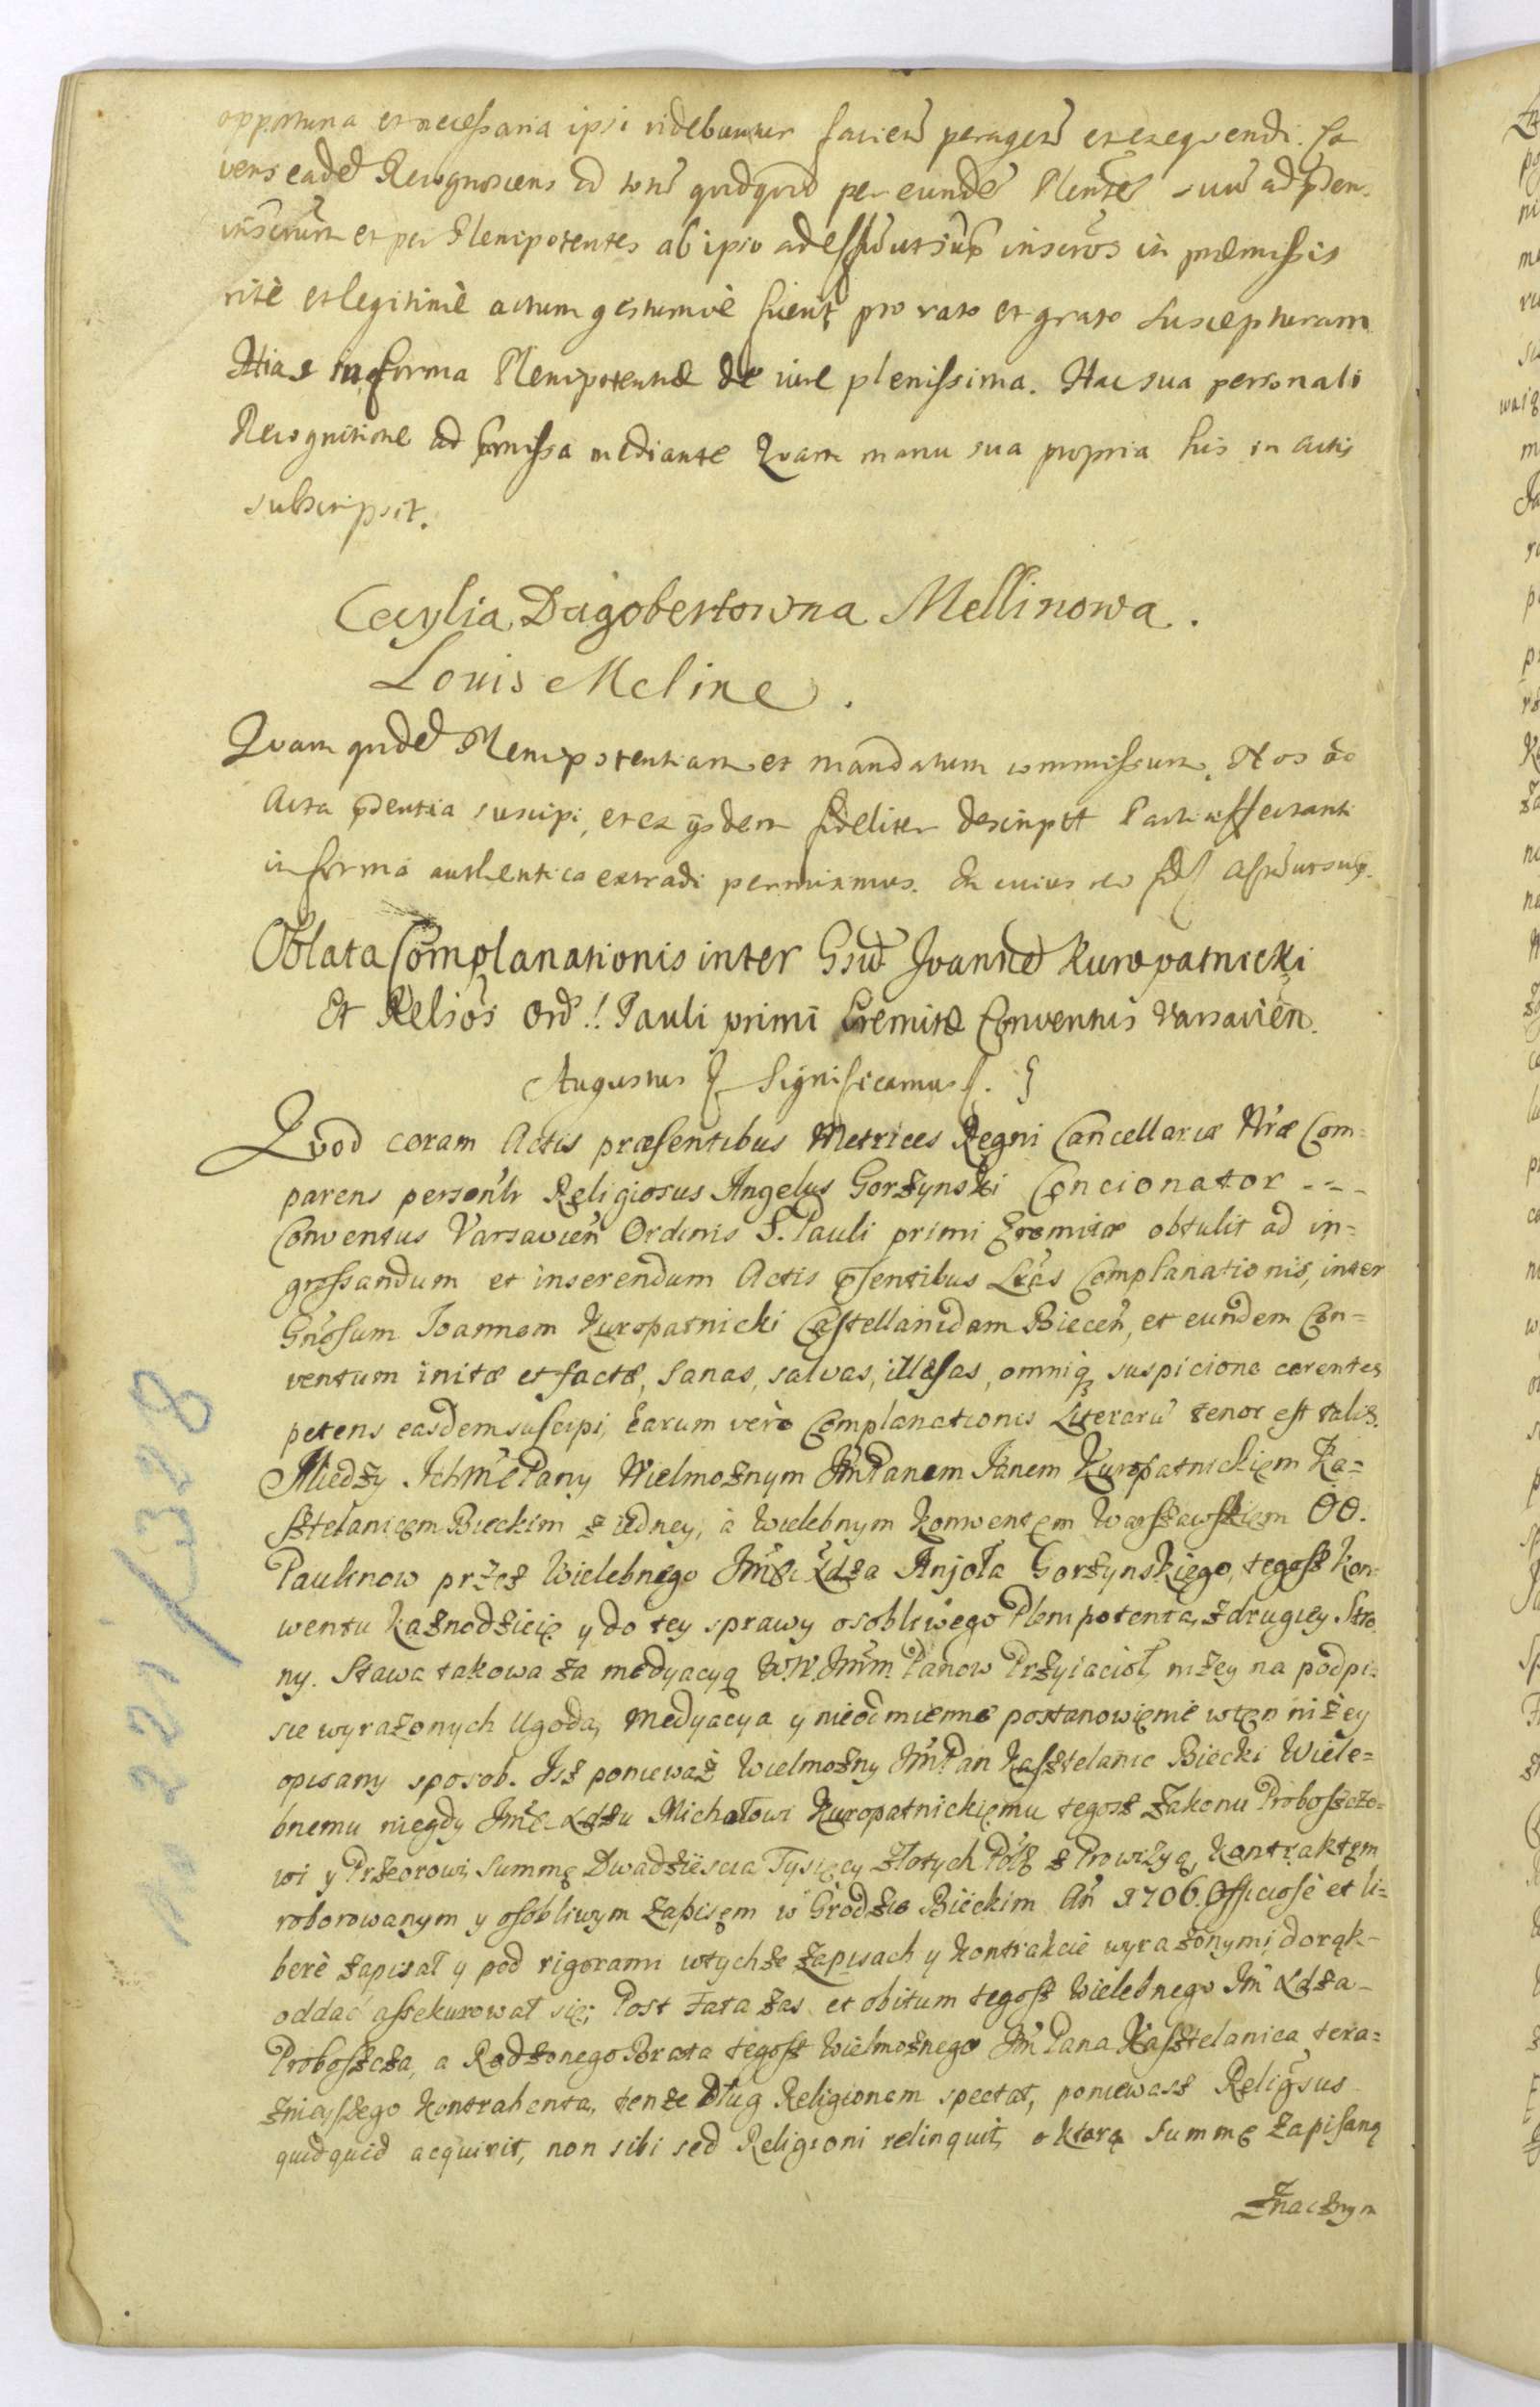 opportuna et necessaria ipsi videbuntur faciend peragend et exequendi. Ca
vens eaded Recognoscens id totu quidquid per eunde Plentem suu ad pden.
inscriunt et per Plenipotentes ab ipso adessiduutsup inscros in præmissis
ritè et legitimè actum gestumvè fuerit pro rato et grato suscepturam
in forma Plenipotentiæ de iure plenissima. Hac sua personali
Recognitione ad præmissa mediante Quam manu sua propria his in actis
subscripsit.
Cecylia Dagobertowna Mellinowa.
Louis Meline.
Quam quided Plenipotentiam et mandatum commissum. Nos ad
Acta pdentia suscipi, et ex ijsdem fideliter descriptt Parti affectanti
in forma authentica extradi permisimus. In cuius rei fid
Oblata Complanationis inter Gsud Joanned Kuropatnicki
Et Relsos Ord. S. Pauli primi Eremitæ Conventus Varsavien.
Augustus Significamus.
Quod coram Actis præsentibus Metrices Regni Cancellariæ Nræ Com=
parens personlr Religiosus Angelus Gorzynski Concionator - - -
Conventus Varsavien Ordinis S. Pauli primi Eremitæ obtulit ad in=
grossandum et inserendum Actis psentibus Lras Complanationis, inter
Gnosum Joannem Kuropatnicki Castellanidam Biecen, et eundem Con=
ventum initæ et factæ, sanas, salvas, illæsas, omniq suspicione carentes
petens easdem suscipi, Earum verò Complanationis Literaru tenor est talis.
Między Ichmć Pany Wielmożnym Jm Panem Janem Kuropatnickięm Ka=
sztelanicęm Bieckim z iedney, à Wielebnym Konwentęm Warszawskięm OO.
Paulinow przez Wielebnego Jmć Xdza Anjoła Gorzynskięgo, tegosz Kon=
wentu Kaznodzieię y do tey sprawy osobliwego Plenipotenta, z drugiey Stro
ny. Stawa takowa za medyacyą W.W. Jmm. Panow Przyiacioł, niżey na podpi=
sie wyrażonych Ugoda, Medyacya y nieodmienne postanowięnie w tęn niżey
opisany sposob. Isz ponieważ Wielmożny Jm Pan Kasztelanic Biecki Wiele=
bnemu niegdy Jmć Xdzu Michałowi Kuropatnickięmu tegosz Zakonu Proboszczo=
wi y Przeorowi, Summę Dwadziescia Tysięcy złotych Pols z Prowizyą, Kontraktęm
roborowanym y osobliwym Zapisęm w Grodzie Bieckim An 1706. Officiosè et li=
berè zapisał y pod rigorami w tychże Zapisach y Kontrakcie wyrażonymi, do rąk-
oddać assekurował się; Post Fata zas et obitum tegosz Wielebnego Jm Xdza-
Proboszcza, a Rodzonego Brata tegosz Wielmożnego Jm Pana Kasztelanica, tera=
znieyszego Kontrahenta, tenże Dług Religionem spectat, ponieważ Religsus
quidquid acquirit, non sibi sed Religioni relinquit, o ktorą Summę zapisaną
Znacznym